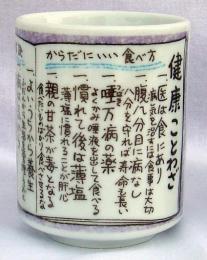 健康ことわざ
からだにいい食べ方
一、医は食にあり
病気を治すには食事は大切
一、腹八分目に病なし
八分を守れば寿命も長い
一、唾万病の薬
よくかみ唾液を出して食べる
一、慣れて後は薄塩
薄塩に慣れることが肝心
一、親の甘茶が毒となる
一、よいうちから養生